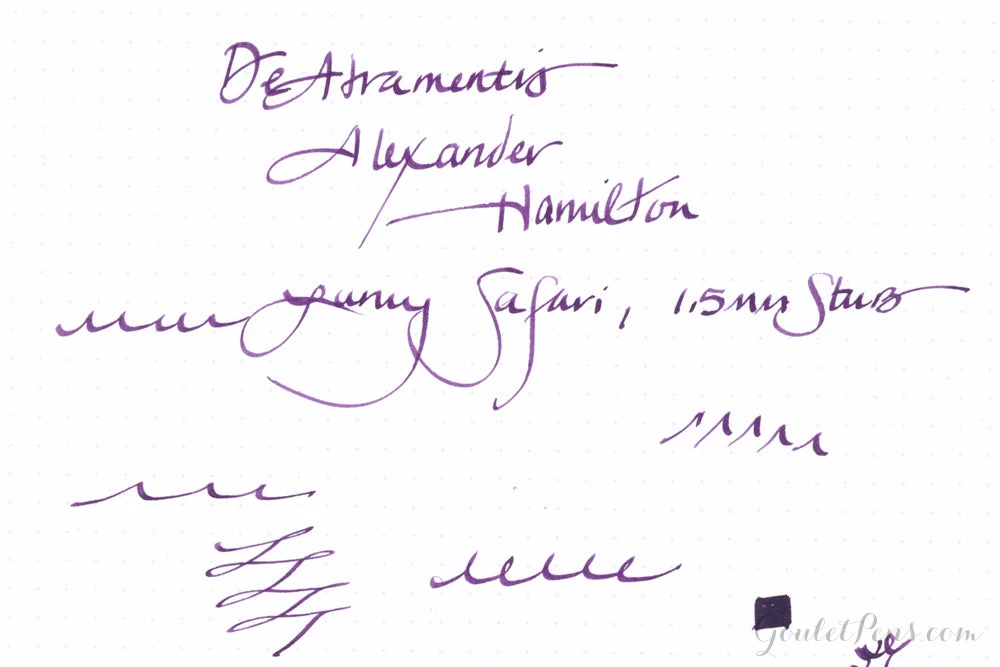 De Atramentis
Alexander
Hamilton
Lamy Safari, 1.5mm Stub
GouletPens.com